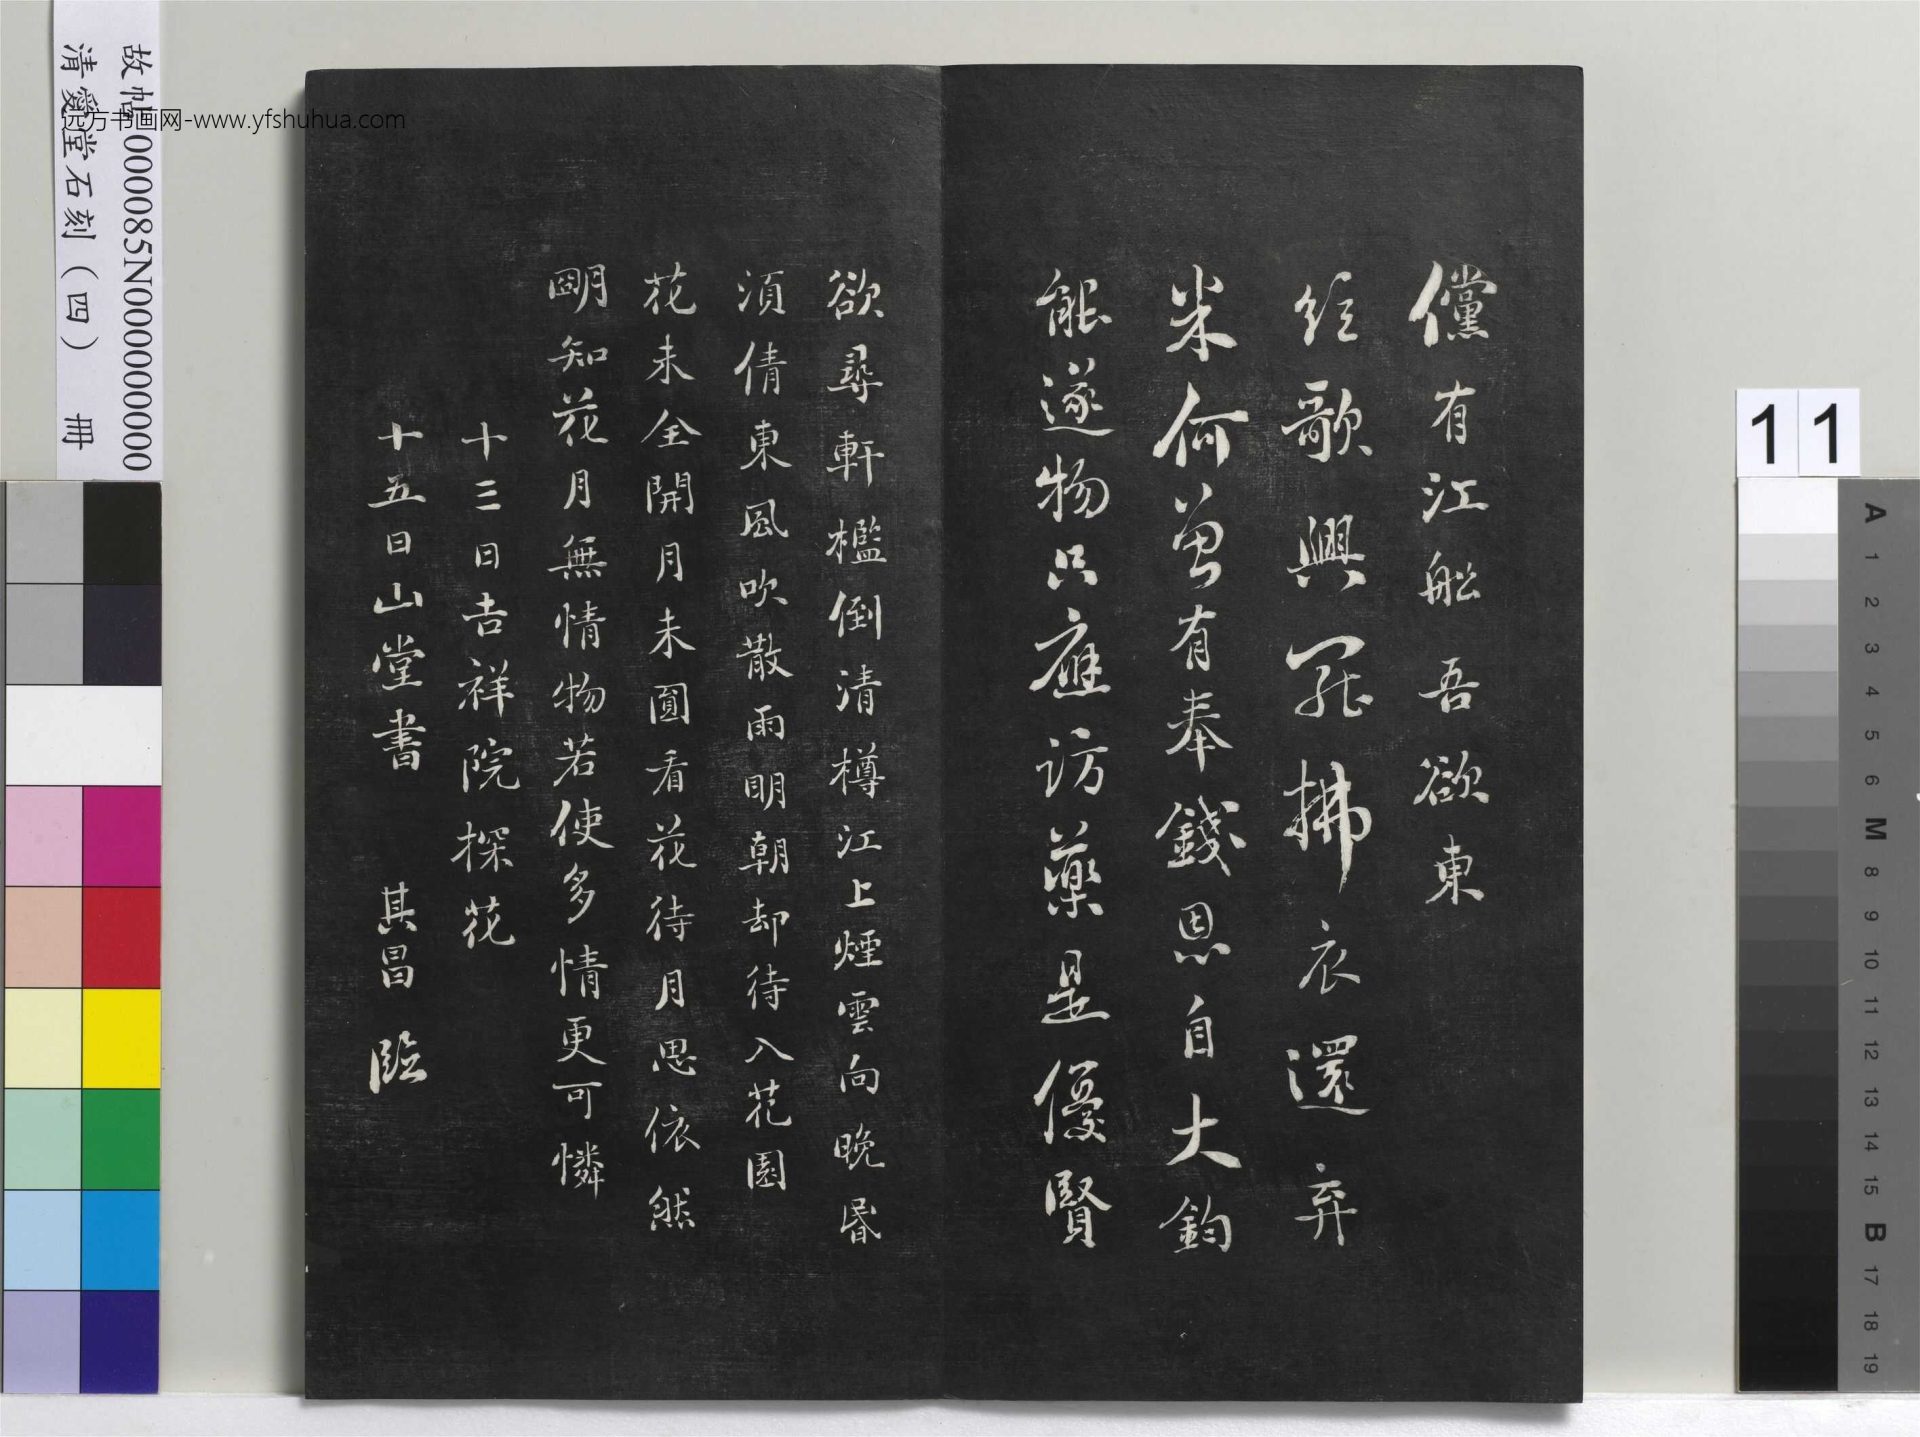 儻有江船吾欲東
絃歌興罷拂衣還弃
米何曾有奉錢恩自大鈞
能遂物只應訪藥是優賢
欲尋軒檻倒清樽江上煙雲向晚昏
須倩東風吹散雨明朝却待入花園
花未全開月未圓看花待月思依然
明知花月無情物若使多情更可憐
十三日吉祥院探花
十五日山堂書 其昌臨
故帖000085N000000000
清愛堂石刻（四） 冊
远方书画网-www.yfshuhua.com
11
A
1
2
3
4
5
6
M
8
9
10
11
12
13
14
15
B
17
18
19